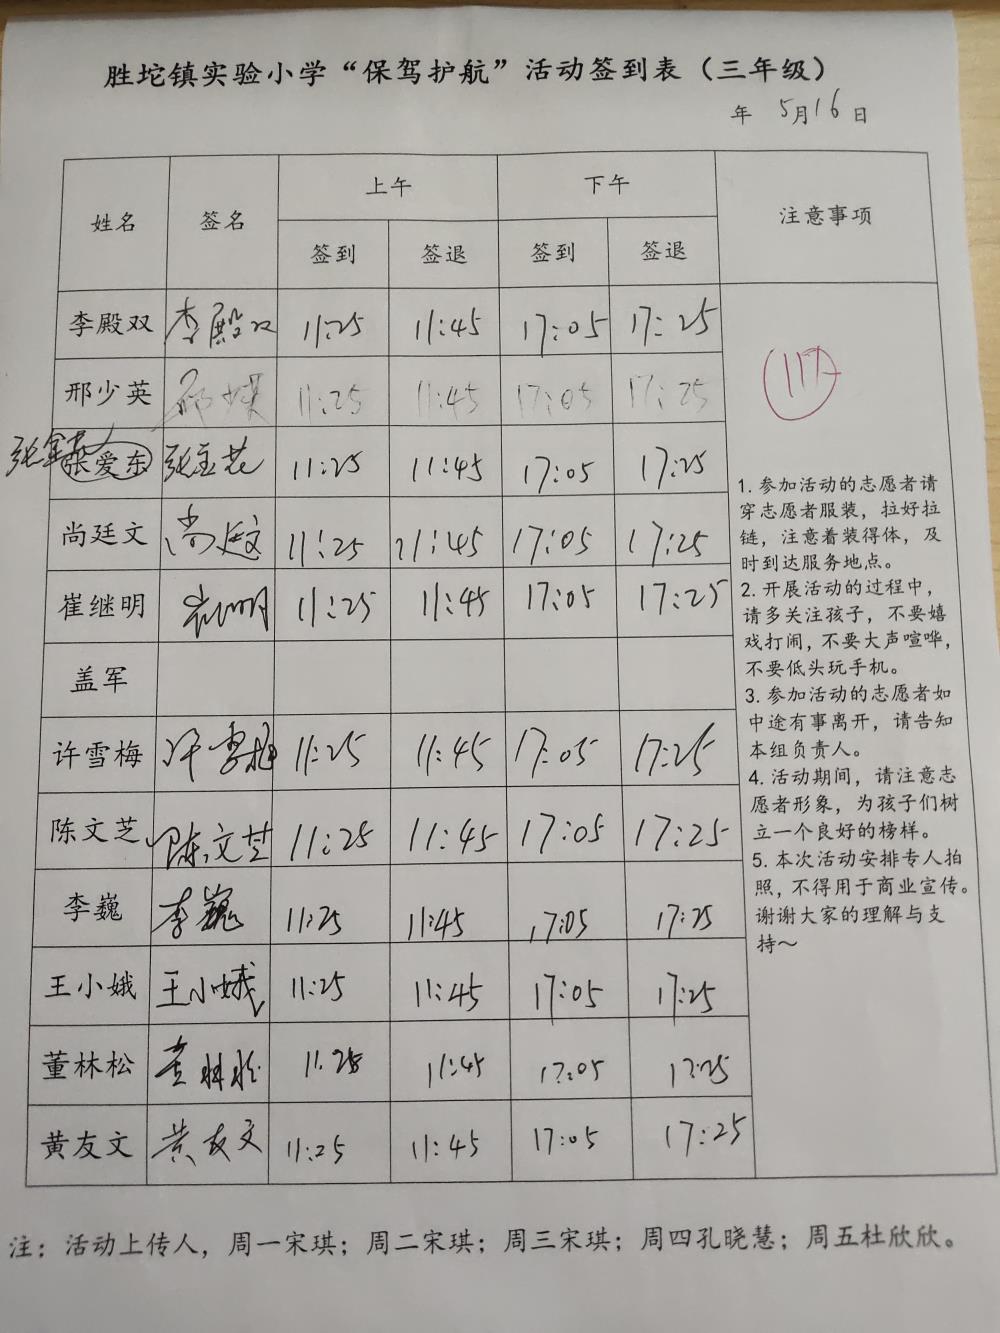 胜坨镇实验小学“保驾护航”活动签到表（三年级）
年 5月16日
姓名 签名 上午 下午 注意事项
签到 签退 签到 签退
李殿双 李殿双 11:25 11:45 17:05 17:25
117
邢少英 邢少英 11:25 11:45 17:05 17:25
张爱东 11:25 11:45 17:05 17:25
尚廷文 尚廷文 11:25 11:45 17:05 17:25
崔继明 11:25 11:45 17:05 17:25
盖军
许雪梅 许雪梅 11:25 11:45 17:05 17:25
陈文芝 陈文芝 11:25 11:45 17:05 17:25
李巍 李巍 11:25 11:45 17:05 17:25
王小娥 王小娥 11:25 11:45 17:05 17:25
董林松 董林松 11:25 11:45 17:05 17:25
黄友文 黄友文 11:25 11:45 17:05 17:25
1. 参加活动的志愿者请
穿志愿者服装，拉好拉
链，注意着装得体，及
时到达服务地点。
2. 开展活动的过程中，
请多关注孩子，不要嬉
戏打闹，不要大声喧哗，
不要低头玩手机。
3. 参加活动的志愿者如
中途有事离开，请告知
本组负责人。
4. 活动期间，请注意志
愿者形象，为孩子们树
立一个良好的榜样。
5. 本次活动安排专人拍
照，不得用于商业宣传。
谢谢大家的理解与支
持～
注：活动上传人，周一宋琪；周二宋琪；周三宋琪；周四孔晓慧；周五杜欣欣。